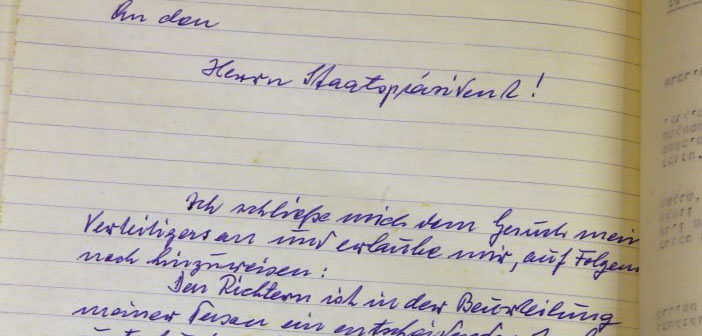 An den
Herrn Staatspräsident!
Ich schließe mich dem Gesuch mein
Verteidigers an und erlaube mir, auf Folgen
noch hinzuweisen:
Den Richtern ist in der Beurteilung
meiner Person ein entscheidender